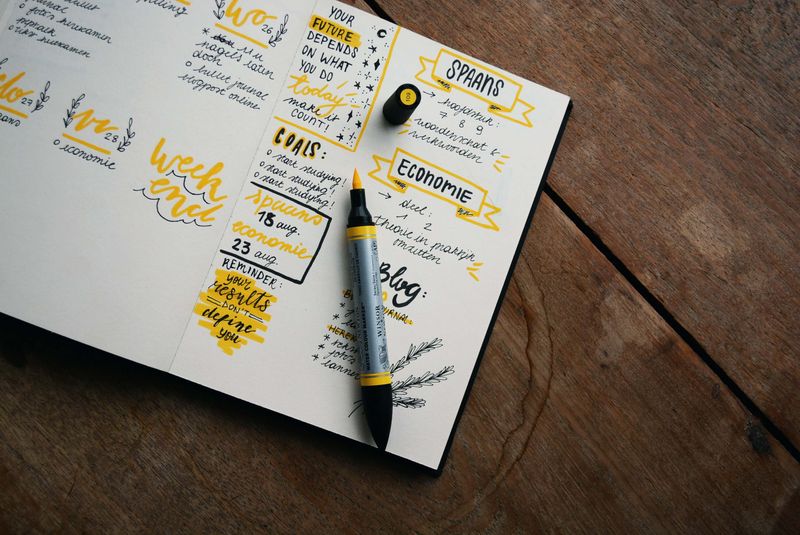 journal
foto's herexamen
pepmath
wo 26
nagels laten
doen
bullet journal
blogpost online
do 27
vr 28
economie
week
end
YOUR
FUTURE
DEPENDS
ON WHAT
YOU DO
today
make it
COUNT!
GOALS:
start studying!
start studying!
start studying!
spaans
18 aug.
economie
23 aug.
REMINDER:
your
results
DON'T
define
you
SPAANS
→ hoofdstuk:
7 8 9
woordenschat &
werkwoorden
ECONOMIE
→ deel:
1 2
theorie in mapje
omzetten
Blog:
WINSOR